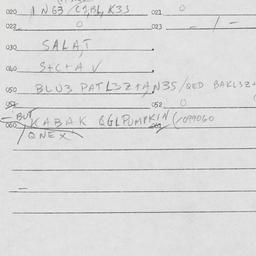 020 1 NG3 / C3, BL, K33 021 0
022 0 023 - / -
030 SALAT
040 S+C+A V
050 BLU3 PATL3Z+A, N35 / RED BAKL3Z+
051 052 0
- BUT
060 KABAK @GLPUMPKIN (-099060
QNEX